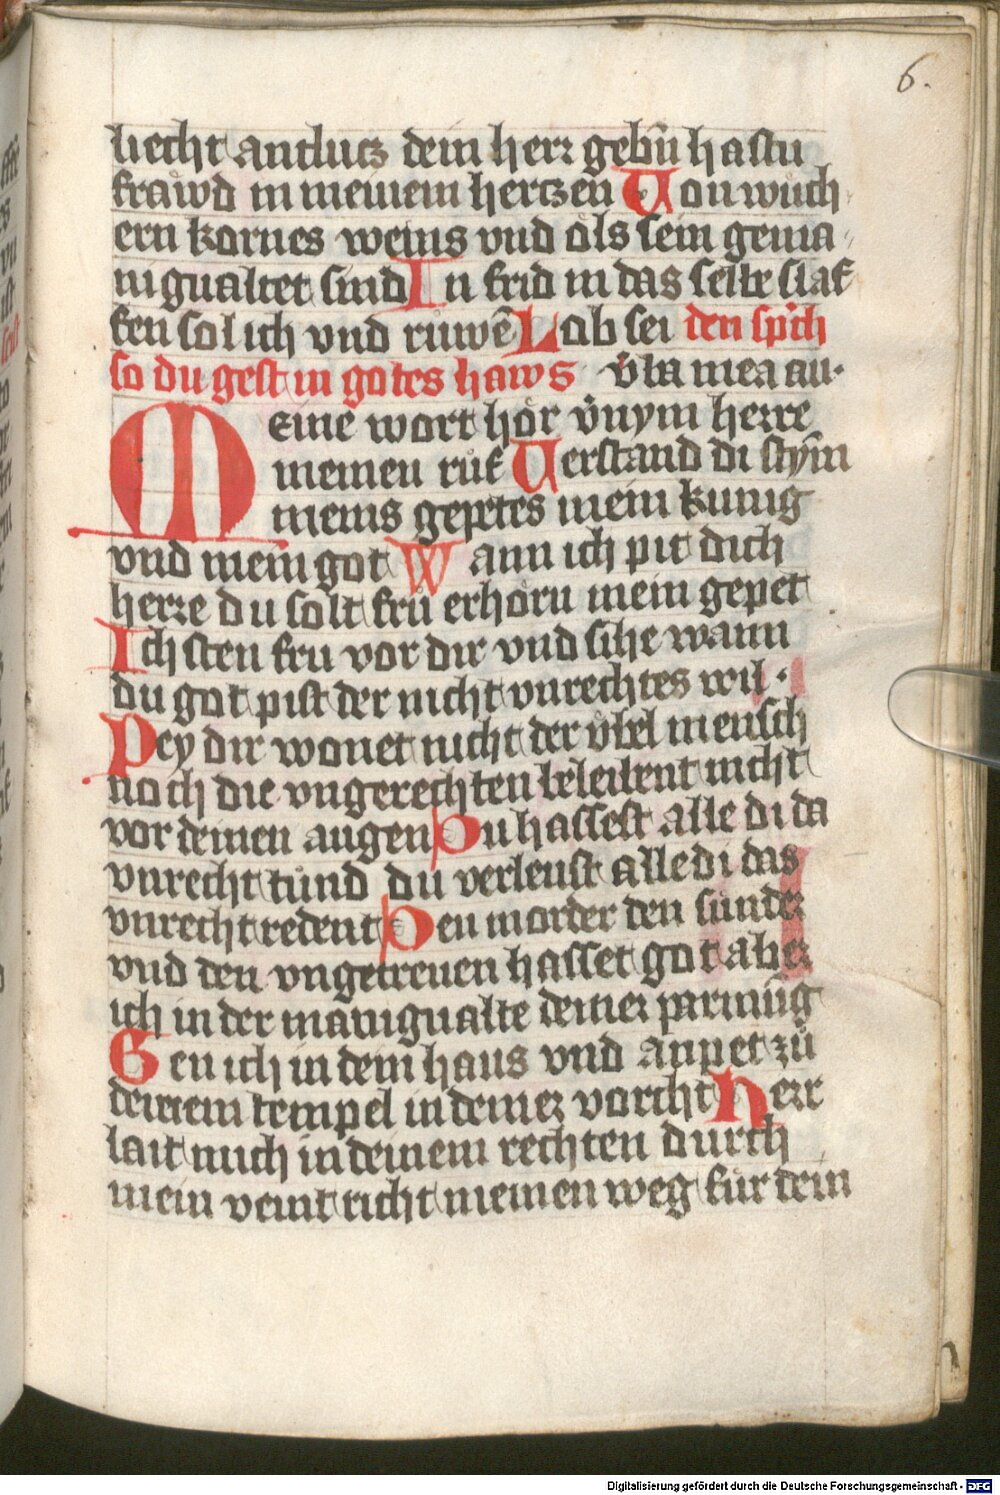 6.
liecht antlucz dein herr gebn̄ hastu
frawd in meinem hertzen Von wuch-
ern kornes weins vnd öls sein gema-
nigualtet sind In frid in das selbe slaf
fen sol ich vnd ruͦwē Lob sei den sp̄ch
so du gest in gotes haws v̄ba mea au.
Meine wort hör v̄nym herre
meinen ruͦf Verstand di stym̄
meins gepetes mein kunig
vnd mein got Wann ich pit dich
herre du solt fruͦ erhörn mein gepet
Ich sten fru vor dir vnd sihe wann
du got pist der nicht vnrechtes wil.
Pey dir wonet nicht der vbel mensch
noch die vngerechten beleibent nicht
vor deinen augen Du hassest alle di da
vnrecht tuͦnd du verleust alle di das
vnrecht redent Den morder den sunder
vnd den vngetreuen hasset got aber
ich in der manigualte deiner parmūg
Gen ich in dein haus vnd anpet zuͦ
deinem tempel in deiner vorcht Herr
lait mich in deinem rechten durch
mein veint richt meinen weg fur dein
Digitalisierung gefördert durch die Deutsche Forschungsgemeinschaft - DFG